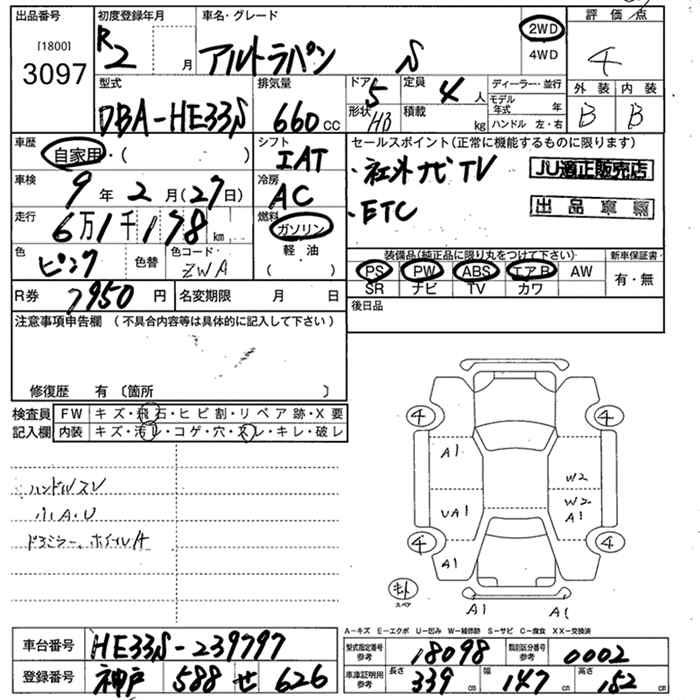 出品番号 初度登録年月 車名・グレード 評価点
[1800]
3097 R2 月 アルトラパン S 2WD 4WD 4
型式 排気量 ドア 定員 ディーラー・並行 外装 内装
DBA-HE33S 660 CC 5 4人 モデル年式 年 B B
形状 HB 積載 kg ハンドル 左・右
車歴 シフト セールスポイント(正常に機能するものに限ります)
自家用・( ) IAT ・社外ナビTV JU適正販売店
車検 冷房 ・ETC
9年2月(27日) AC 出品車
走行 燃料
6万1千178 km ガソリン
軽・油
( )
色 色替 色コード 装備品(純正品に限り丸をつけて下さい) 新車保証書
ピンク ZWA PS PW ABS エアB AW 有・無
SR ナビ TV カワ
R券 7950円 名変期限 月 日 後日品
注意事項申告欄 (不具合内容等は具体的に記入して下さい)
修復歴 有 〔箇所 〕
検査員 FW キズ・飛石・ヒビ割・リペア跡・X要
記入欄 内装 キズ・汚レ・コゲ・穴・スレ・キレ・破レ
ハンドルスレ
小A・U
ドアミラー、ホイルA
4 4
A1
W2
UA1 W2
A1
4 4
A1
スペア
A1 A1
A−キズ E−エクボ U−凹み W−補修跡 S−サビ C−腐食 XX−交換済
車台番号 HE33S-239797
型式指定番号 参考 18098 類別区分番号 参考 0002
登録番号 神戸 588 せ 626
車庫証明用 参考 長さ 339 cm 幅 147 cm 高さ 152 cm